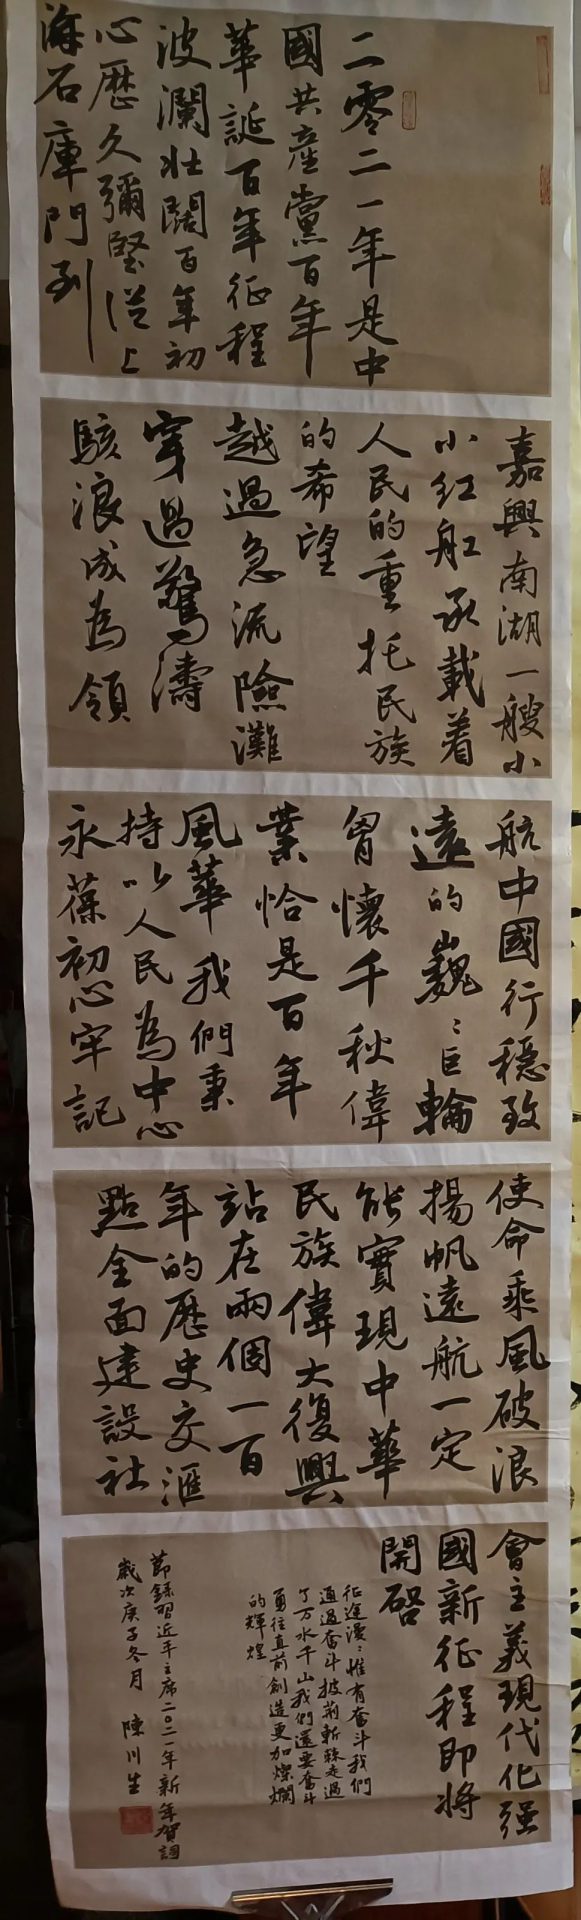 二零二一年是中
國共產黨百年
華誕百年征程
波瀾壯闊百年初
心歷久彌堅從上
海石庫門到
嘉興南湖一艘小
小紅船承載着
人民的重托民族
的希望
越過急流險灘
穿過驚濤
駭浪成為領
航中國行穩致
遠的巍〻巨輪
胷懷千秋偉
業恰是百年
風華我們秉
持以人民為中心
永葆初心牢記
使命乘風破浪
揚帆遠航一定
能實現中華
民族偉大復興
站在兩個一百
年的歷史交滙
點全面建設社
會主義現代化强
國新征程即將
開啓
征途漫〻惟有奮斗我們
通過奮斗披荆斬棘走過
了万水千山我們還要奮斗
勇往直前創造更加燦爛
的輝煌
節錄習近平主席二〇二一年新年賀詞
歲次庚子冬月 陳川生